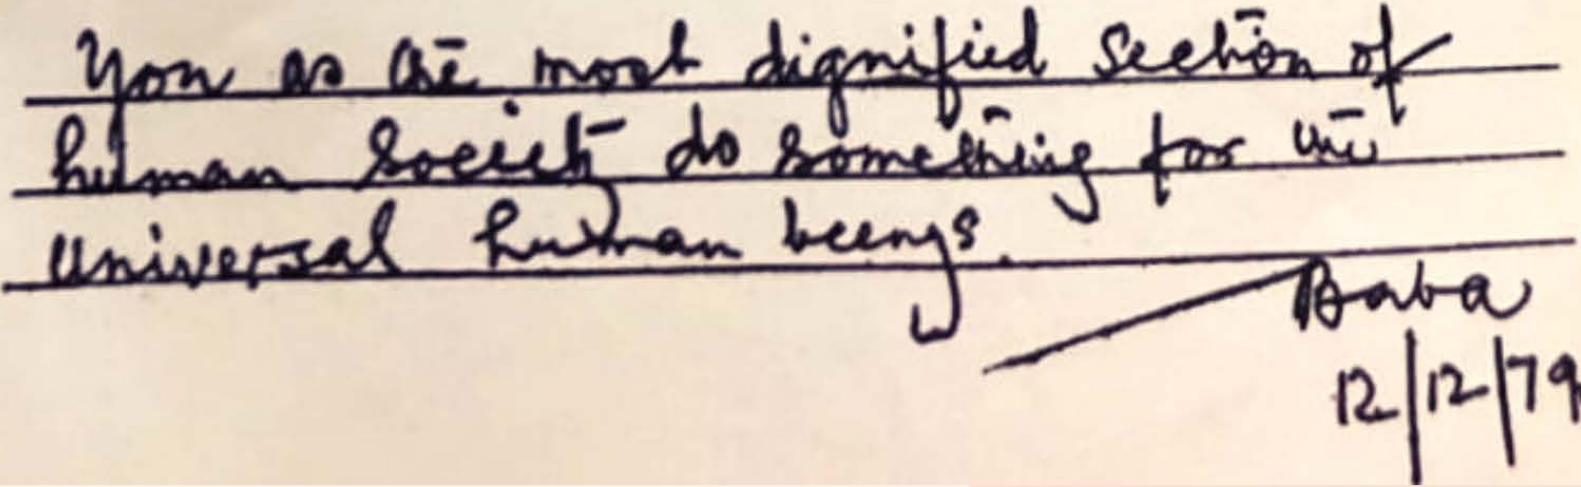 You as the most dignified section of
human society do something for the
universal human beings.
Baba
12/12/79